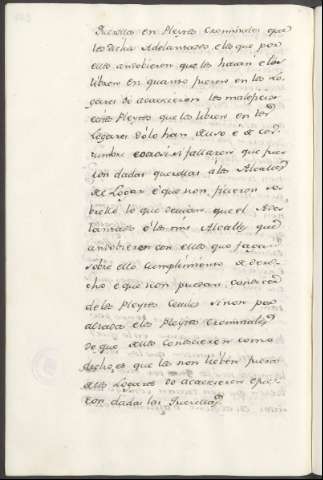 Querellas en Pleytos Creminales que
los dichos Adelantados e los que por
ellos andobieren que los hagan e los
libren en quanto fueren en los Lo,
gares do acaecieren los maleficios
estos Pleytos que los libren en los
Logares dólo han de uso é de cos,
tumbre é otrosi si fallaren que fue
ron dadas querellas á los Alcalles
del Logar é que non fizieron so,
bre ello lo que devian que el Ade
lantado é los mis Alcalles que
andobieren con ellos que fagan
sobre ello cumplimiento de dere,
cho é que non puedan conoscer
de los Pleytos Ceviles sinon por
alzada e los Pleytos Creminales
de que ellos conoscieren como
dicho es que los non lieben fuera
de los Logares do acaecieren é fue
ron dadas las Querellas